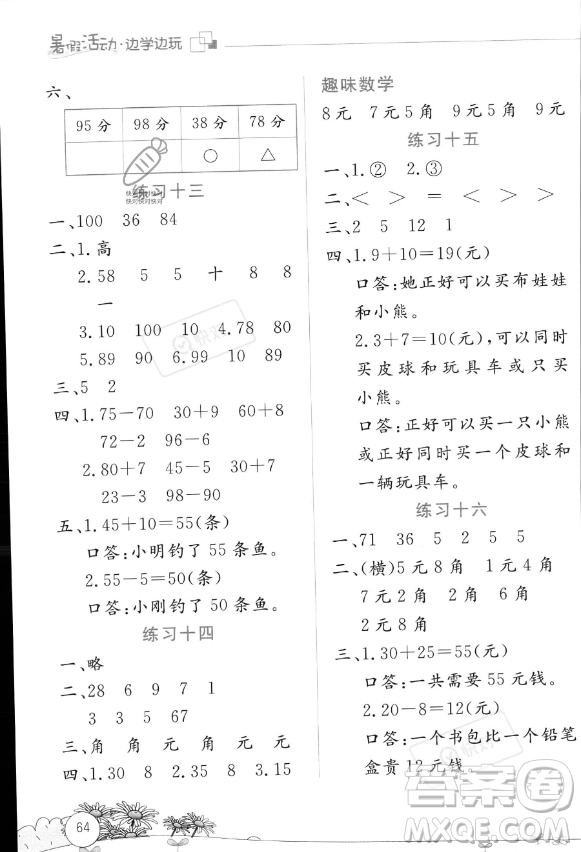 暑假活动·边学边玩
六、
95分 98分 38分 78分
○ △
练习十三
快对快对快对
快对快对快对
一、100 36 84
二、1.高
2.58 5 5 十 8 8
一
3.10 100 10 4.78 80
5.89 90 6.99 10
三、5 2
四、1.75－70 30＋9
72－2 96－6
2.80＋7 45－5 30＋7
23－3 98－8
五、1.45＋10＝55(条)
口答:小明钓了 55 条鱼。
2.55－5＝50(条)
口答:小刚钓了 50 条鱼。
练习十四
一、略
二、28 6 9 7 1
3 3 5 67
三、角 角 元 元 角
四、1.28 2.35 8 3.15
64
趣味数学
8元 7元5角 9元5角 9元
练习十五
一、1.② 2.③
二、＜ ＞ ＝ ＞ ＞ ＜
三、2 5 12 1
四、1.9＋10＝19(元)
口答:她正好可以买布娃娃
和小熊。
2.3＋7＝10(元),可以同时
买皮球和玩具车或只买
小熊。
口答:正好可以买一只小熊
或正好同时买一个皮球和
一辆玩具车。
练习十六
一、71 36 5 2 5
二、(横)5元8角 1元2角
7元2角 8元 4元
三、1.30＋25＝55(元)
口答:一共需要 55 元钱。
2.20－8＝12(元)
口答:一个书包比一个铅笔
盒贵 12 元钱。
快对
答案圈
MXQE.COM